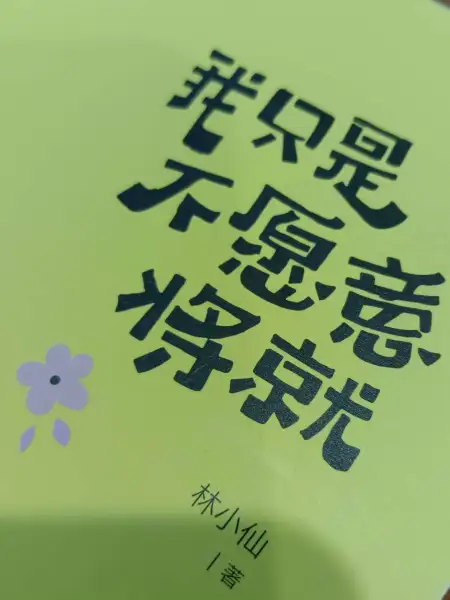 我只是
不愿意
将就
林小仙
|著